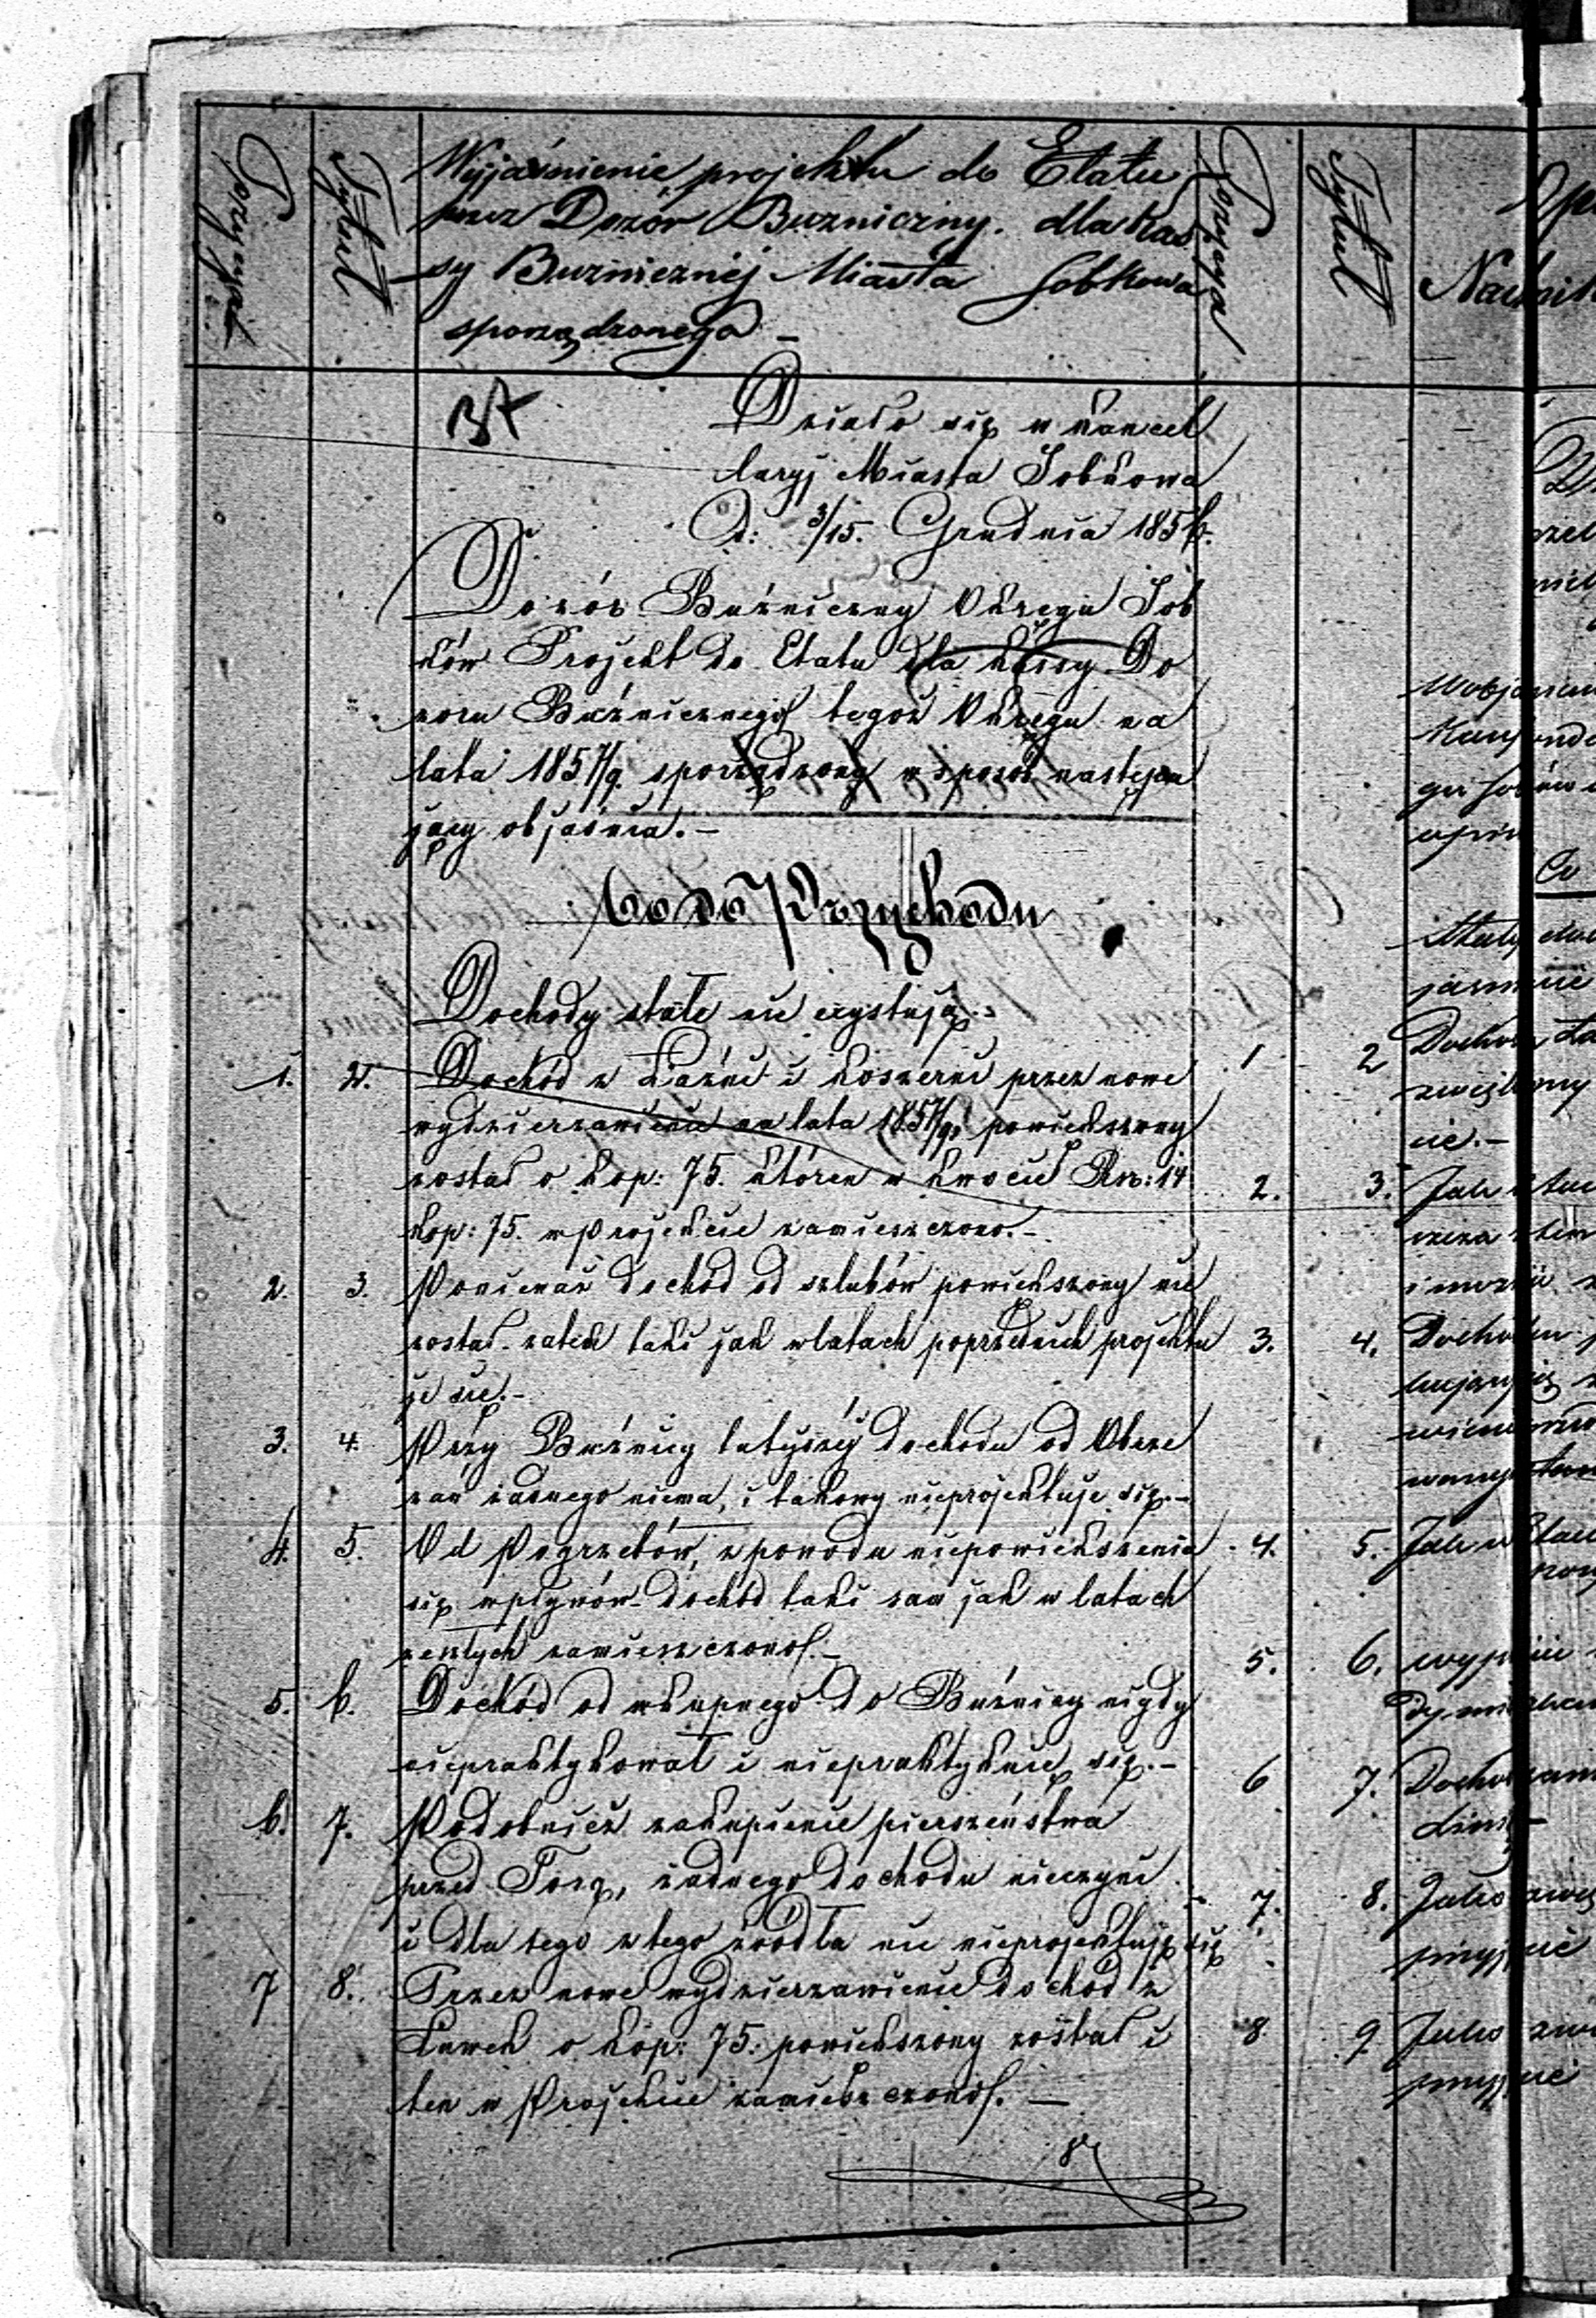 Pozycya
Tytuł
Wyjaśnienie projektu do Etatu
przez Dozór Buzniczny. dla Kas
sy Buznicznéj Miasta Sobkowa
sporządzonego –
Pozycya
Tytuł
Działo się w Kancel
laryj Miasta Sobkowa
D: 3/15. Grudnia 1856.
Dozór Buźniczny Okręgu Sob
ków Projekt do Etatu dla Kassy Do
zoru Buźnicznego tegoż Okręgu na
lata 1857/9. sporządzony w sposób nastepu
jący objaśnia.–
Co do Przychodu
Dochody stałe nie exystują.
1. 2. Dochód z Łaźni i koszerni przez nowe
wydzierzawienie na lata 1857/9. powiekszony
został o kop: 75. któren w kwocie Rs: 14
kop: 75. w Projekcie zamieszczono.–
2. 3. Ponieważ dochód od szlubów powiekszony nie
został. zatem taki jak w latach poprzednich projektu
je sie.–
3. 4. Przy Buźnicy tutyszéj dochodu od Obrze
zań żadnego niema, i takowy nieprojektuje się.–
4. 5. Od Pogrzebów, z powodu niepowiekszenia
się wpływów dochód taki sam jak w latach
zeszłych zamieszczono.–
5. 6. Dochód od wkupnego do Buźnicy nigdy
niepraktykował i niepraktykuie się.–
6. 7. Podobnież zakupienie pierszeństwa
przed Torą, żadnego dochodu nieczyni
i dla tego z tego źródła nic nieprojektuje się
7 8. Przez nowe wydzierzawienie dochód z
Ławek o kop: 75: powiekszony został i
ten w Projekcie zamieszczono. —
1 2
2. 3.
3. 4.
4. 5.
5. 6.
6 7.
7. 8.
8 9